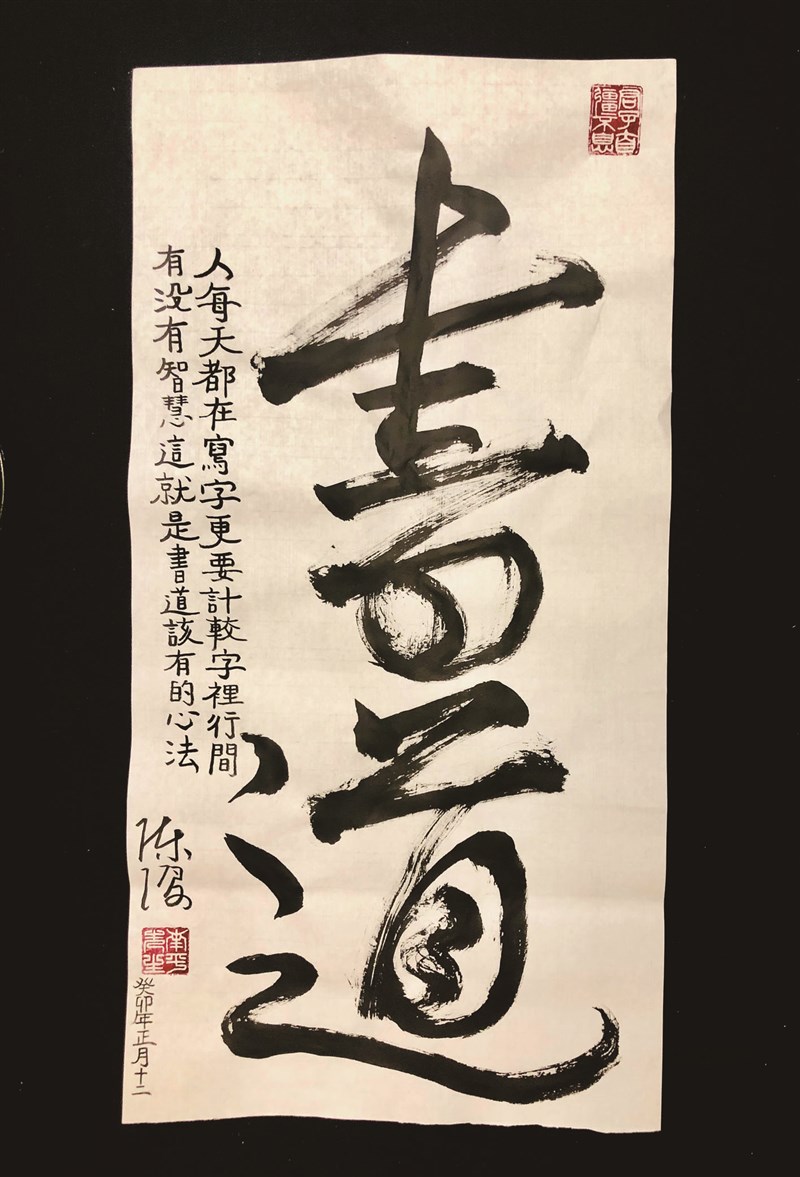 君子自
彊不息
書道
人每天都在寫字更要計較字裡行間
有没有智慧這就是書道該有的心法
癸卯年正月十二